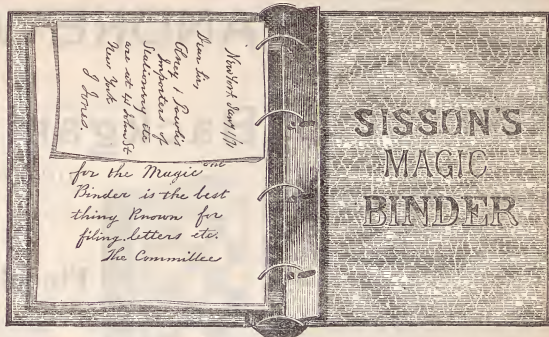 New York Jany 1/71
Dear Sir,
Olney &
Importers of
Stationery etc
are at 41 John St
New York
J Jones.
for the Magic
Binder is the best
thing Known for
filing letters etc.
The Committee
SISSON'S
MAGIC
BINDER